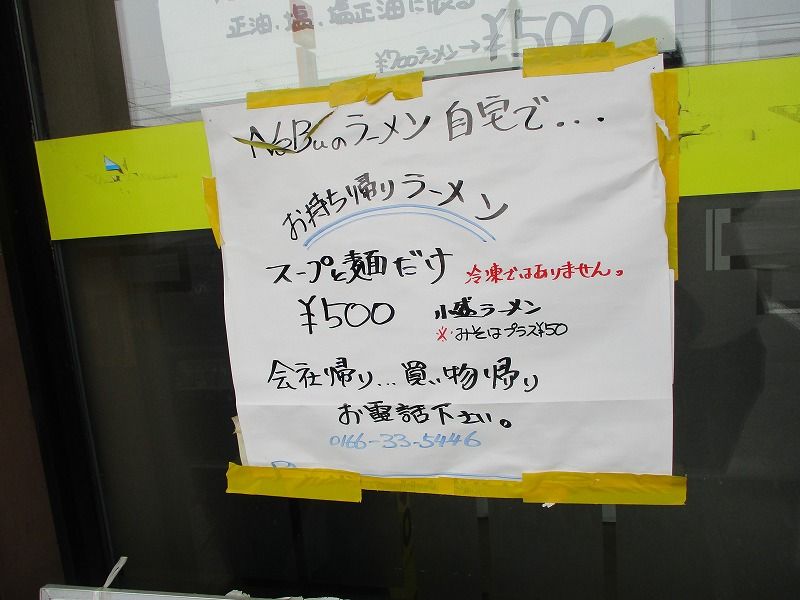 正油、塩、塩正油に限る
¥700ラーメン→¥500
NoBuのラーメン 自宅で...
お持ち帰りラーメン
スープと麺だけ 冷凍ではありません。
¥500 小盛ラーメン
※みそはプラス¥50
会社帰り...買い物帰り
お電話下さい。
0166-33-5446